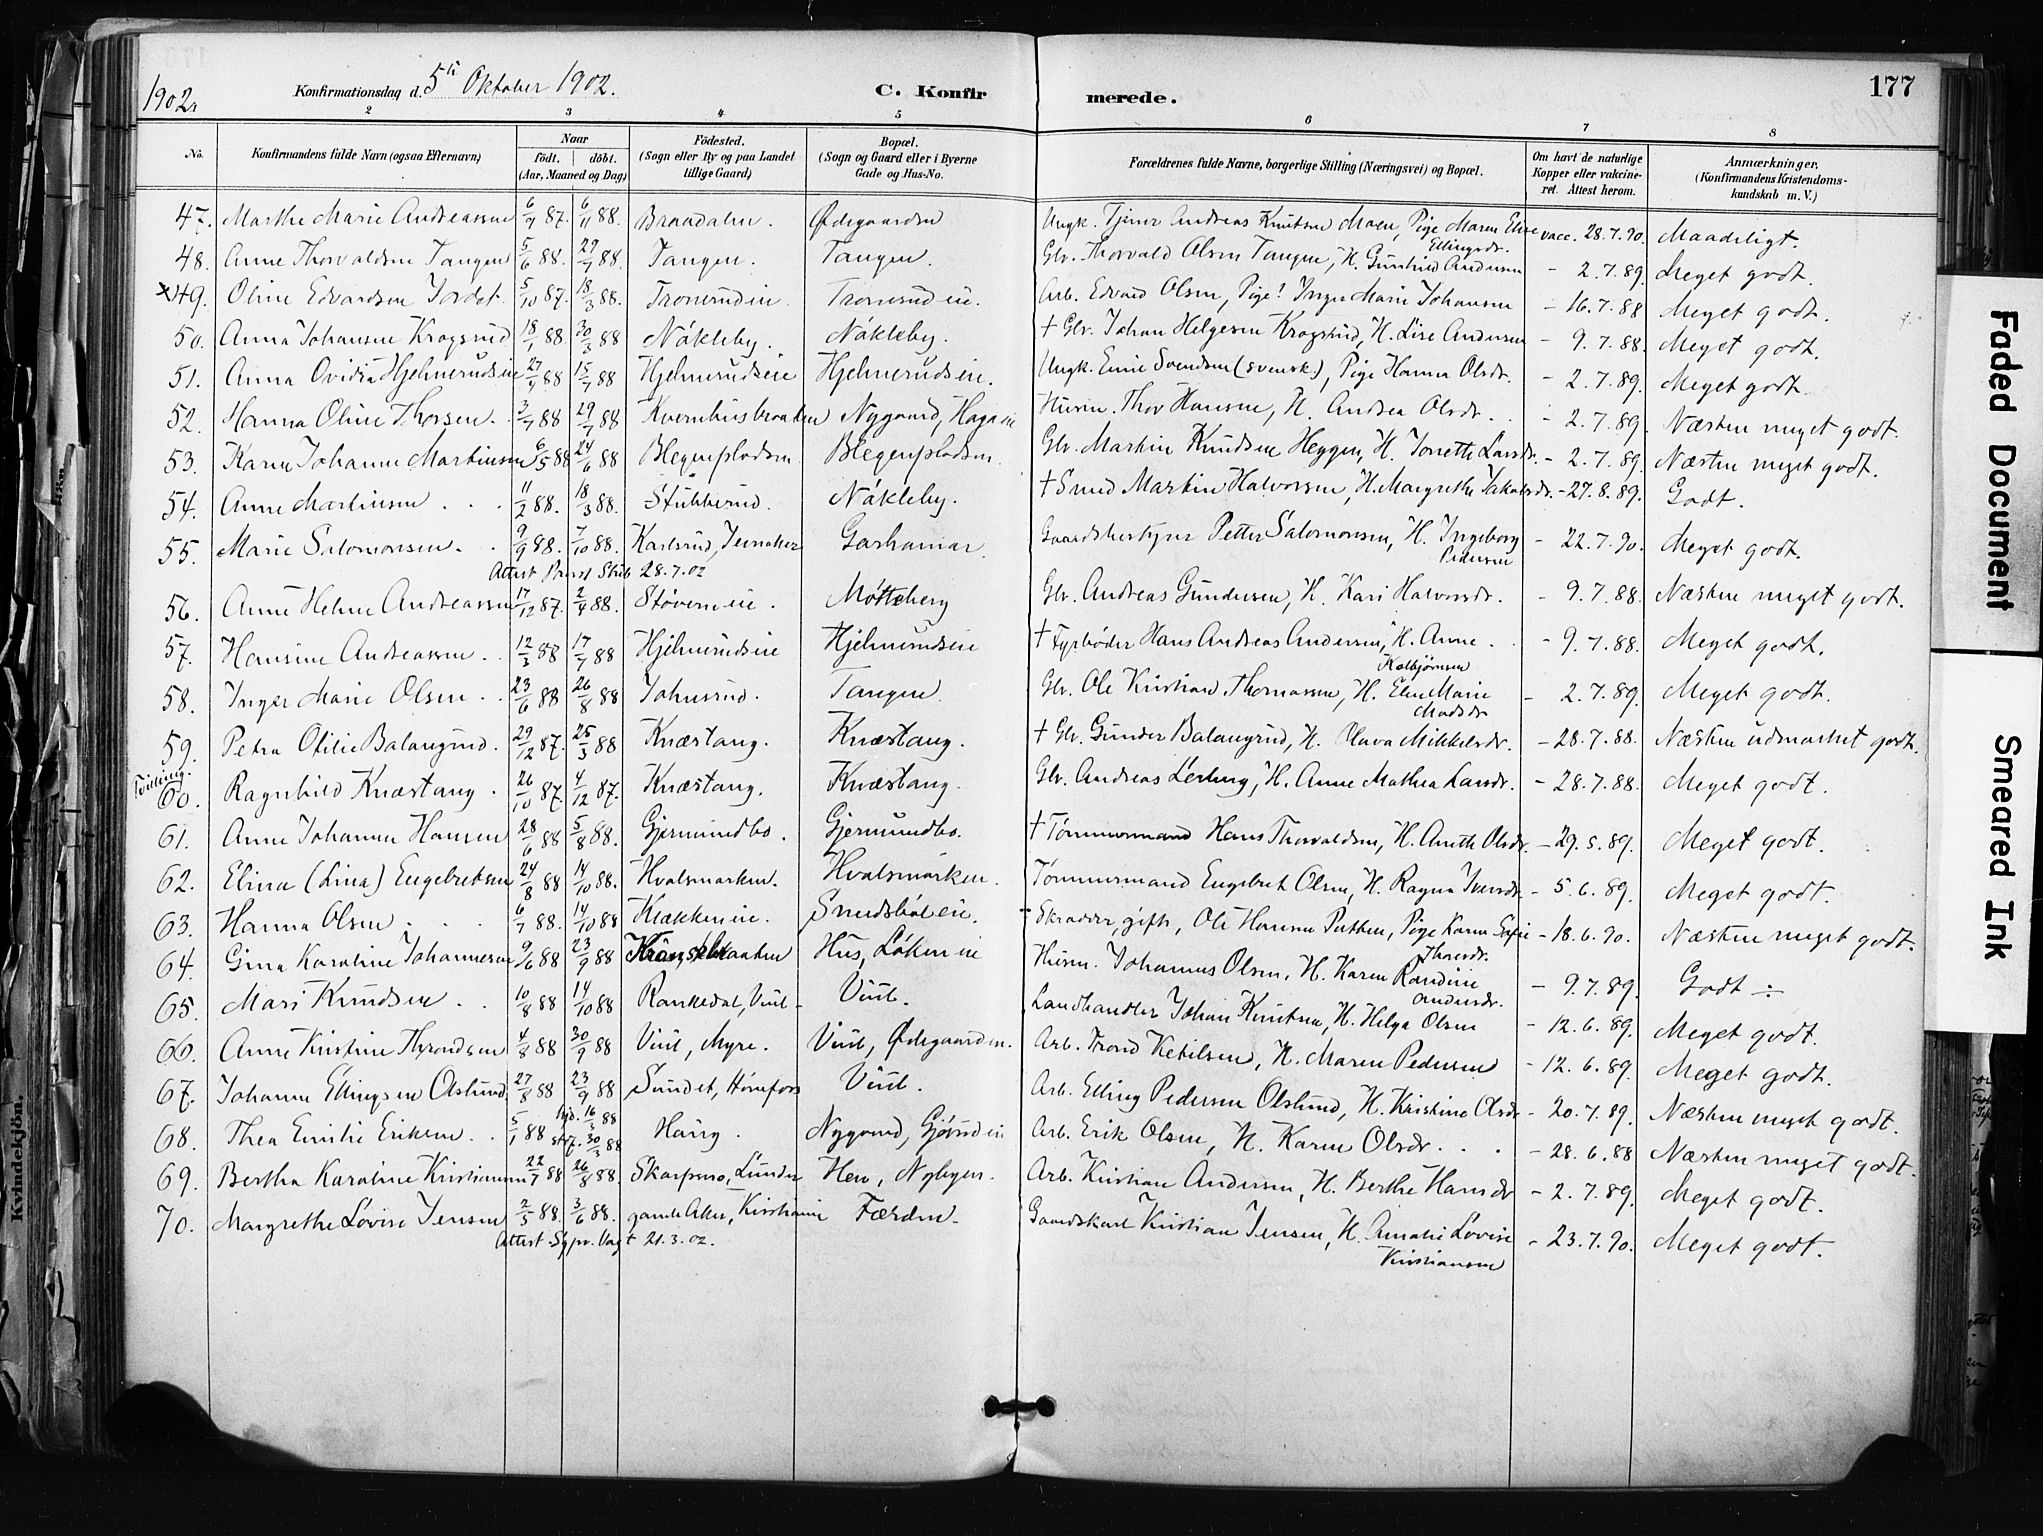 177
1902.
Konfirmationsdag d. 5te Oktober 1902.
C. Konfirmerede.
2 3 4 5 6 7 8
No. Konfirmandens fulde Navn (ogsaa Efternavn) Naar födt. döbt. (Aar, Maaned og Dag) Födested. (Sogn eller By og paa Landet tillige Gaard) Bopæl. (Sogn og Gaard eller i Byerne Gade og Hus-No. Forældrenes fulde Navne, borgerlige Stilling (Næringsvei) og Bopæl. Om havt de naturlige Kopper eller vakcineret. Attest herom. Anmærkninger. (Konfirmandens Kristendomskundskab m. V.)
47. Marthe Marie Andreassen 6/7 87. 6/11 88. Braadalen. Ødegaarden Ungk. Tjener Andreas Knutsen Moen, Pige Maren Elise Ellingsdr. vacc. 28.7.90. Maadeligt.
48. Anne Thorvaldsen Tangen 5/6 88. 29/7 88. Tangen. Tangen. Glv. Thorvald Olsen Tangen, H. Gunhild Andersen - 2.7.89. Meget godt.
×49. Oline Edvardsen Jordet 5/10 87. 18/3 88. Tronrudeie. Tronrudeie. Arb. Edvard Olsen, Pige! Inger Marie Johansen - 16.7.88 Meget godt.
50. Anna Johansen Kragsrud 18/1 88. 30/3 88 Näkleby. Näkleby. † Glv. Johan Helgesen Kragsrud, H. Lise Andersen - 9.7.88. Meget godt.
51. Anna Ovidia Hjelmerudseie 27/4 88 15/7 88 Hjelmerudseie Hjelmerudseie. Ungk. Emil Svendsen (svensk), Pige Hanna Olsdr. - 2.7.89. Meget godt.
52. Hanna Oline Thorsen. 3/7 88 29/7 88 Kvernhusbraaten Nygaard, Hageneie Husm. Thor Hansen, H. Andrea Olsdr. - 2.7.89. Næsten meget godt.
53. Karen Johanne Martinsen 6/5 88 24/6 88 Blegenpladsen Blegenpladsen. Glv. Martin Knudsen Heggen, H. Jonette Larsdr. - 2.7.89. Næsten meget godt.
54. Anne Martinsen 11/2 88. 18/3 88. Stubberud. Näkleby. † Smed Martin Halvorsen, H. Margrethe Jakobsdr. - 27.8.89. Godt.
55. Marie Salomonsen. 9/9 88. 7/10 88. Karlsrud, Jevnaker Garhamar. Gaardsbestyrer Petter Salomonsen, H. Ingeborg Pedersen - 22.7.90. Meget godt.
Attest Provst Strib 28.7.02
56. Anne Helene Andreassen 17/12 87. 2/4 88. Støverneie. Møtteberg Glv. Andreas Gundersen, H. Kari Halvorsdr. - 9.7.88. Næsten meget godt.
57. Hansine Andreassen. 12/3 88 17/7 88 Hjelmerudseie Hjelmerudseie † Fyrbøder Hans Andreas Andersen, H. Anne Kolbjørnsen - 9.7.88. Meget godt.
58. Inger Marie Olsen 23/6 88 26/8 88 Johnsrud. Tangen Glv. Ole Kristian Thomassen, H. Elen Marie Madsdr. - 2.7.89. Meget godt.
59. Petra Otilie Balangrud. 29/12 87. 25/3 88 Knæstang. Knæstang. † Glv. Gunder Balangrud, H. Olava Mikkelsdr. - 28.7.88. Næsten udmærket godt.
Tvilling. 60. Ragnhild Knæstang. 26/10 87. 4/12 87. Knæstang. Knæstang. Glv. Andreas Lesteberg, H. Anne Mathea Larsdr. - 28.7.88. Meget godt.
61. Anne Johanne Hansen 28/6 88 5/8 88. Gjermundbo. Gjermundbo. † Tømmermand Hans Thorvaldsen, H. Anette Olsdr. - 29.5.89. Meget godt.
62. Elina (Lina) Engebretsen 24/8 88 14/10 88. Hvalsmarken. Hvalsmarken. Tømmermand Engebret Olsen, H. Ragna Iversdr. - 5.6.89. Meget godt.
63. Hanna Olsen 6/7 88. 14/10 88 Klækkeneie. Smedsböleie. Skrædder, gift, Ole Hansen Putten, Pige Karen Sofie Thoresdr. - 18.6.90. Næsten meget godt.
64. Gina Karoline Johannesen 9/6 88 23/9 88 Hus, Løkeneie Husm. Johannes Olsen, H. Karen Randine Andersdr. - 9.7.89. Godt ÷
65. Mari Knudsen 10/8 88 14/10 88 Rankedal, Viul Viul. Landhandler Johan Knutsen, H. Helga Olsen - 12.6.89. Meget godt.
66. Anne Kristine Throndsen 4/8 88 30/9 88 Viul, Myre. Viul, Ødegaarden. Arb. Trond Ketilsen, H. Maren Pedersen - 12.6.89. Meget godt.
67. Johanne Ellingsen Olslund 27/8 88 23/9 88 Sundet, Hønefos Viul. Arb. Elling Pedersen Olslund, H. Kristine Olsdr. - 20.7.89. Næsten meget godt.
68. Thea Emilie Eriksen. 5/1 88 hjd. 16/3 88 st.f. 30/3 88 Haug. Nygaard, Gjørudeie Arb. Erik Olsen, H. Karen Olsdr. - 28.6.88 Næsten meget godt.
69. Bertha Karoline Kristiansen 22/7 88 26/8 88. Skarpsno, Lunder Hen, Nybyen. Arb. Kristian Andersen, H. Berthe Hansdr - 2.7.89. Meget godt.
70. Margrethe Lovise Jensen 2/5 88. 3/6 88. gamle Aker, Kristiania Færden. Gaardskarl Kristian Jensen, H. Amalie Lovise Kristiansen - 23.7.90. Meget godt.
Attest Sgpr. Vagt 21.3.02.
Kvindekjön.
Faded Document
Smeared Ink